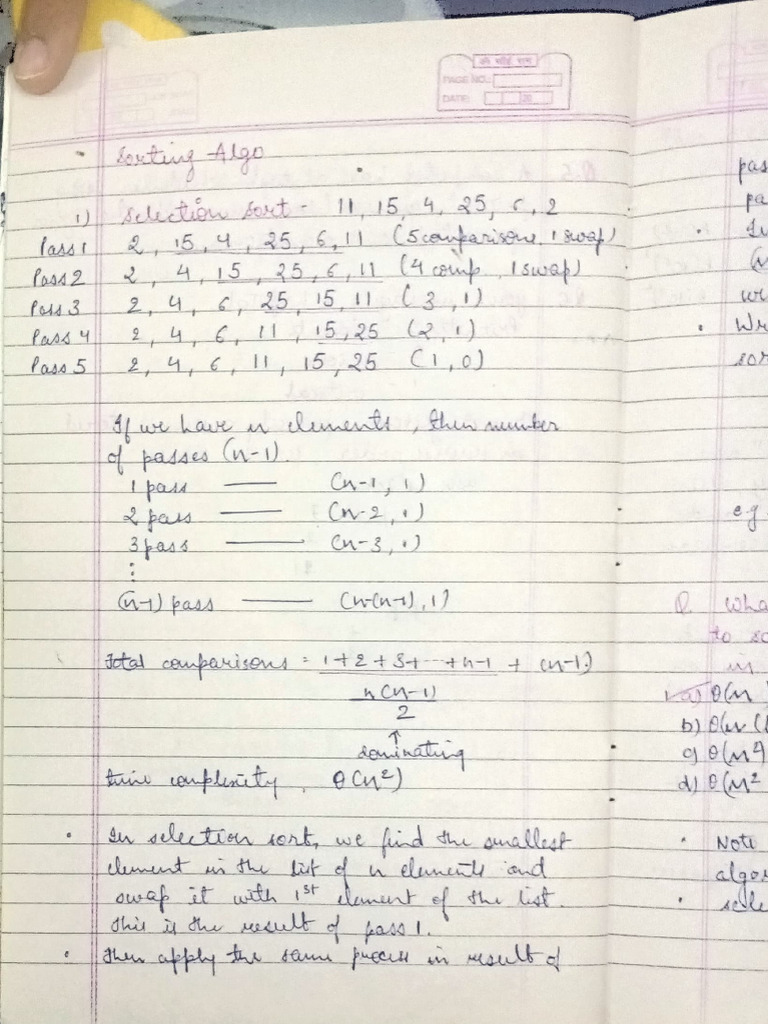 PAGE NO.:
DATE:
Sorting Algo
1) Selection sort - 11, 15, 4, 25, 6, 2
Pass 1 2, 15, 4, 25, 6, 11 (5 comparisons, 1 swap)
Pass 2 2, 4, 15, 25, 6, 11 (4 comp. 1 swap)
Pass 3 2, 4, 6, 25, 15, 11 (3, 1)
Pass 4 2, 4, 6, 11, 15, 25 (2, 1)
Pass 5 2, 4, 6, 11, 15, 25 (1, 0)
If we have n elements, then number
of passes (n-1).
1 pass — (n-1, 1)
2 pass — (n-2, 1)
3 pass — (n-3, 1)
⋮
(n-1) pass — (n-(n-1), 1)
Total comparisons = 1+2+3+---+n-1 + (n-1)
n(n-1)
2
↑
dominating
time complexity. θ(n²)
• In selection sort, we find the smallest
element in the list of n elements and
swap it with 1st element of the list.
This is the result of pass 1.
• Then apply the same process in result of
pas
pa
•
wr
• Wr
sor
e.g.
Q. Wha
to so
in
a) θ(n
b) θ(n (l
c) θ(n²)
d) θ(n²
• Note
algor
• sele